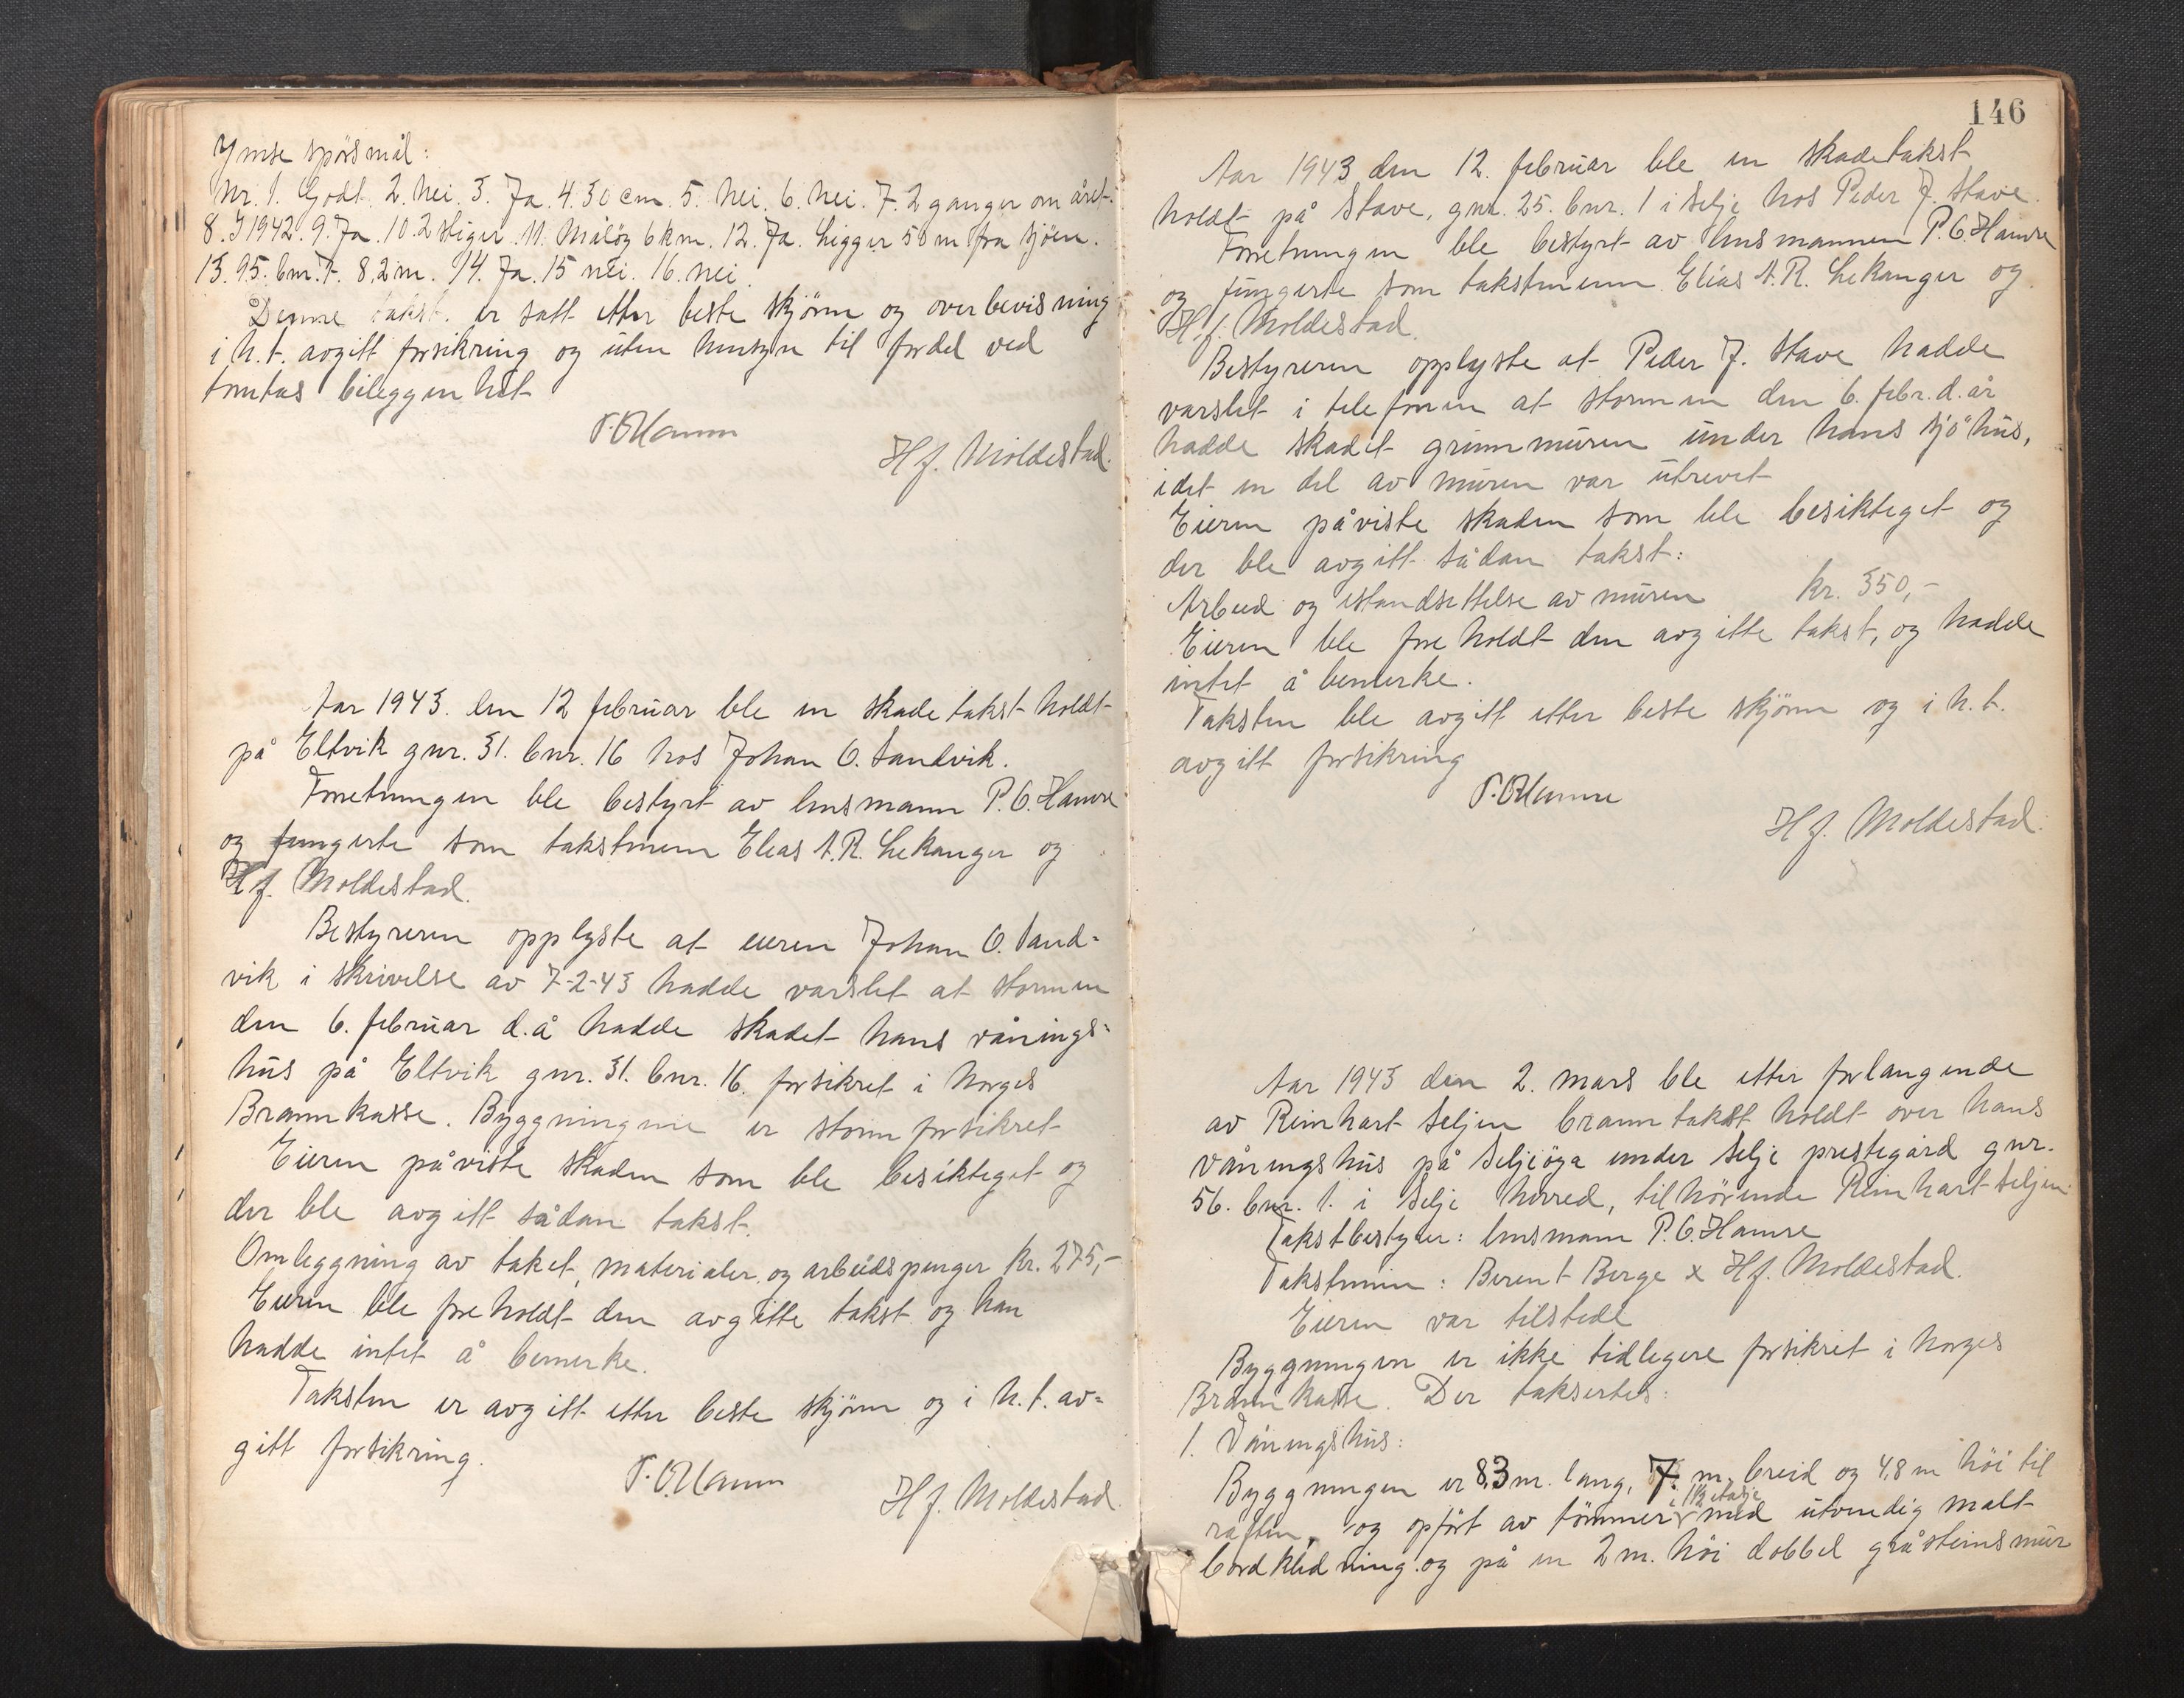 Ymse spörsmål:
Nr. 1. Godt. 2. Nei. 3. Ja. 4. 30 cm. 5. Nei. 6. Nei. 7. 2 ganger om året.
8. I 1942. 9. Ja. 10. 2 stiger. 11. Målöy 6 km. 12. Ja. Ligger 50 m fra sjöen.
13. 95. bnr. 8,2 m. 14. Ja. 15 nei. 16. nei.
Denne takst. er satt etter beste skjönn og overbevisning
i h.t. avgitt forsikring og uten hensyn til fordel ved
tomtas beleggenhet
P.O.Hamre
H.J. Moldestad.
Aar 1943. den 12 februar ble en skadetakst holdt
på Eltvik gnr. 31. bnr. 16 hos Johan O. Sandvik.
Forretningen ble bestyrt av lensmann P.O. Hamre
og fungerte som takstmenn Elias A.R. Lekanger og
H.J. Moldestad.
Bestyreren opplyste at eieren Johan O. Sand=
vik i skrivelse av 7-2-43 hadde varslet at stormen
den 6. februar d.å hadde skadet hans vånings=
hus på Eltvik gnr. 31. bnr. 16. forsikret i Norges
Brannkasse. Byggningene er stormforsikret
Eieren påviste skaden som ble besikteget og
der ble avgitt sådan takst.
Omleggning av taket, materialer og arbeidspenger kr. 275,-
Eieren ble foreholdt den avgitte takst og han
hadde intet å bemerke.
Taksten er avgitt etter beste skjönn og i h.t. av=
gitt forsikring.
P.O.Hamre
H.J. Moldestad.
146
Aar 1943 den 12. februar ble en skadetakst
holdt på Stave, gnr. 25. bnr. 1 i Selje hos Peder J. Stave.
Forretningen ble bestyrt av lensmannen P.O. Hamre
og fungerte som takstmenn Elias A.R. Lekanger og
H.J. Moldestad.
Bestyreren opplyste at Peder J. Stave hadde
varslet i telefonen at stormen den 6. febr. d. år
hadde skadet grunnmuren under hans sjöhus,
idet en del av muren var utrevet
Eieren påviste skaden som ble besikteget og
der ble avgitt sådan takst:
Arbeid og istandsettelse av muren kr. 350,-
Eieren ble foreholdt den avgitte takst, og hadde
intet å bemerke.
Taksten ble avgitt etter beste skjönn og i h.t.
avgitt forsikring
P.O.Hamre
H.J. Moldestad.
Aar 1943 den 2. mars ble etter forlangende
av Reinhart Seljen branntakst holdt over hans
våningshus på Seljeöya under Selje prestegård gnr.
56. bnr. 1. i Selje herred, tilhörende Reinhart Seljen.
Takstbestyrer: lensmann P.O. Hamre
Takstmenn: Berent Berge & H.J. Moldestad.
Eieren var tilstede
Byggningen er ikke tidligere forsikret i Norges
Brannkasse. Der taksertes:
1. Våningshus:
Byggningen er 8,3 m. lang, 7. m. breid og 4,8 m höi til
i 1½ etasje
raften, og opfört av tömmer med utvendig malt
bordkledning og på en 2 m. höi dobbel gråsteinsmur